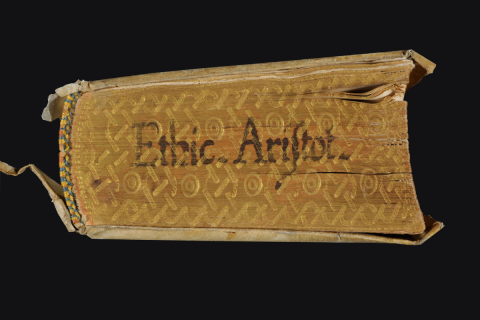 Ethic. Ariſtot.